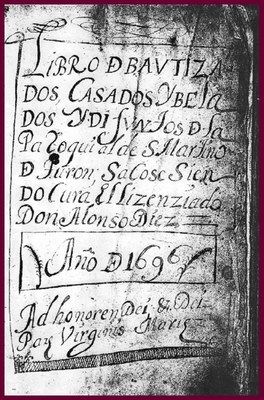 LIBRO D BAVTIZA
DOS, CASADOS Y BELA
DOS Y DIFVNTOS D la
Paroquial de S. Martino
D Turon, Sacose Sien
DO Cura, El Lizenziado
Don Alonso Diez
Año D 1696
Ad honoren Dei, & Dei
Virginis Mariæ